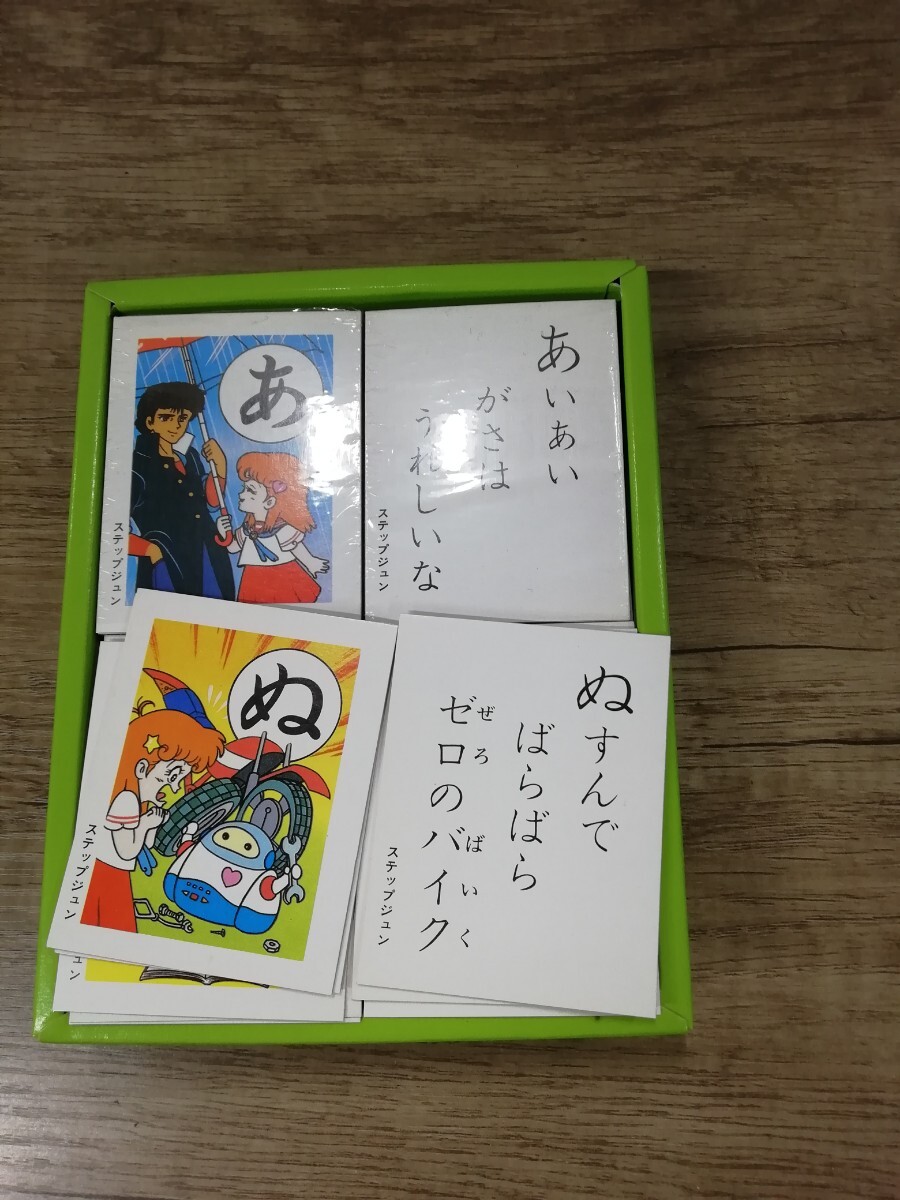 あ
ステップジュン
あいあい
がさは
うれしいな
ステップジュン
ぬ
ステップジュン
ぬすんで
ばらばら
ゼロのバイク
ぜろ ばいく
ステップジュン
ュン